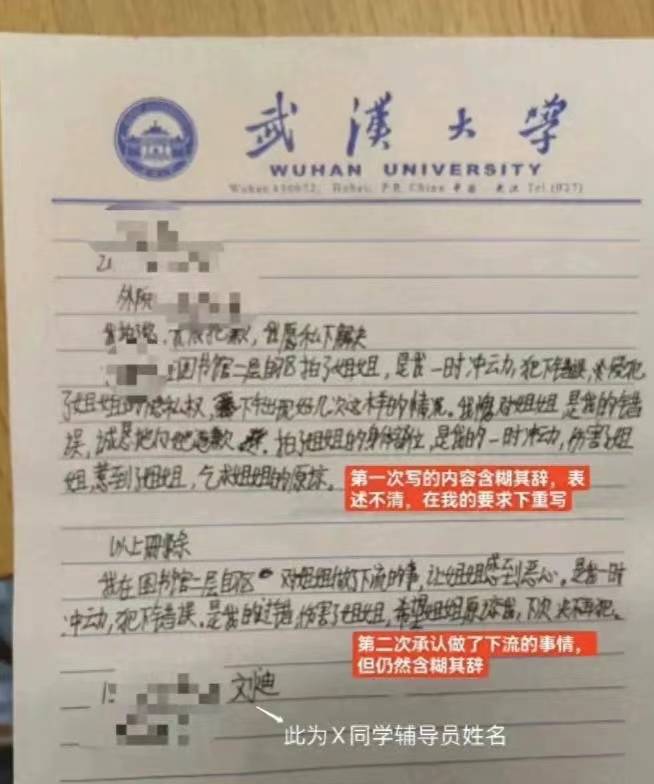 武漢大學
WUHAN UNIVERSITY
Wuhan 430072, Hubei, P.R. China 中国·武汉 Tel.(027)
外院
我愿私下解决
图书馆二层自习区拍了姐姐，是我一时冲动，犯下错误，侵犯
了姐姐的隐私权，下出现好几次这样的情况。我愧对姐姐，是我的错
误，诚恳地向她道歉，拍了姐姐的身体部位，是我的一时冲动，伤害了姐
姐，惹到了姐姐，乞求姐姐的原谅。
第一次写的内容含糊其辞，表
述不清，在我的要求下重写
以上删除
我在图书馆二层自习区对姐姐做了下流的事，让姐姐感到恶心。是我一时
冲动，犯下错误。是我的过错，伤害了姐姐，希望姐姐原谅我，下次决不再犯。
第二次承认做了下流的事情，
但仍然含糊其辞
刘迪
此为X同学辅导员姓名